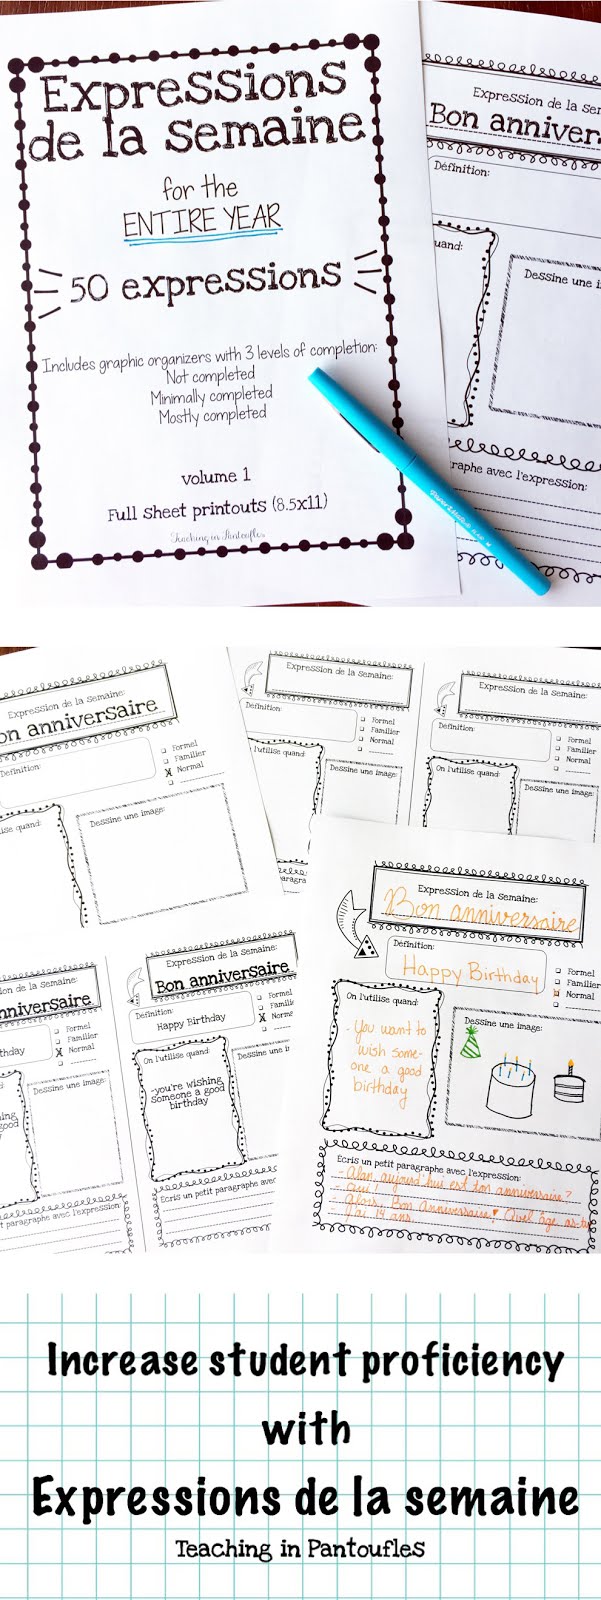 Expressions
de la semaine
for the
ENTIRE YEAR
50 expressions
Includes graphic organizers with 3 levels of completion:
Not completed
Minimally completed
Mostly completed
volume 1
Full sheet printouts (8.5x11)
Teaching in Pantoufles
Expression de la
Bon anniver
Définition:
uand:
Dessine une
graphe avec l'expression:
Expression de la semaine:
on anniversaire
Définition:
Formel
Familier
X Normal
lise quand:
Dessine une image:
Expression de la semaine:
Définition:
Formel
Familier
Normal
On l'utilise quand:
Dessine une image:
Expression de la semaine:
Définition:
Formel
Familier
Normal
On l'utilise quand:
Dessine une image:
semaine:
nniversaire
hday
Formel
Familier
X Normal
Dessine une image:
phe avec l'expression:
Expression de la semaine:
Bon anniversaire
Définition:
Happy Birthday
Formel
Famili
X Norma
On l'utilise quand:
-you're wishing
someone a good
birthday
Dessine une
Ecris un petit paragraphe
Expression de la semaine:
Bon anniversaire
Définition:
Happy Birthday
Formel
Familier
Normal
On l'utilise quand:
-You want to
wish some-
one a good
birthday
Dessine une image:
Ecris un petit paragraphe avec l'expression:
- Alan, aujourd'hui est ton anniversaire?
- Oui
- Alors, Bon Anniversaire! Quel âge as-tu
- J'ai 14 ans.
Increase student proficiency
with
Expressions de la semaine
Teaching in Pantoufles